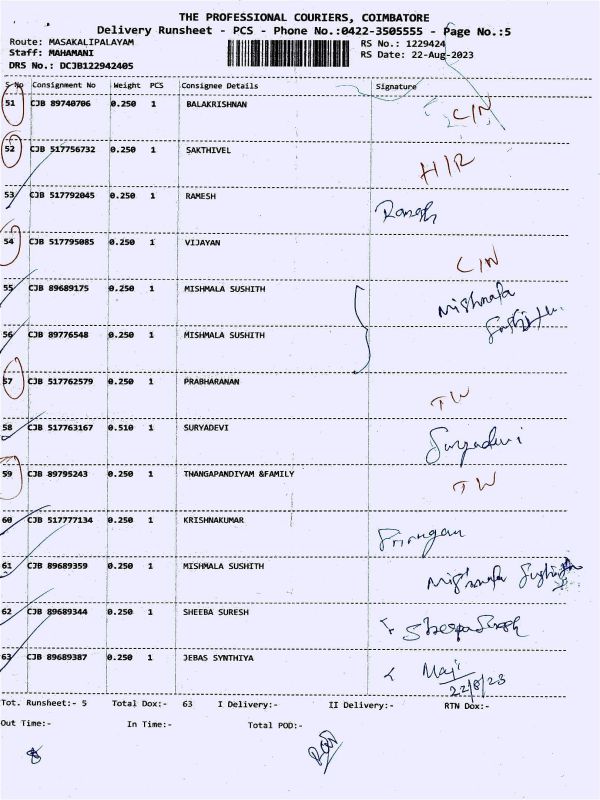 THE PROFESSIONAL COURIERS, COIMBATORE
Delivery Runsheet - PCS - Phone No.:0422-3505555 - Page No.:5
Route: MASAKALIPALAYAM RS No.: 1229424
Staff: MAHAMANI RS Date: 22-Aug-2023
DRS No.: DCJB122942405
S No Consignment No Weight PCS Consignee Details Signature
51 CJB 89740706 0.250 1 BALAKRISHNAN C/N
52 CJB 517756732 0.250 1 SAKTHIVEL H/R
53 CJB 517792045 0.250 1 RAMESH Ramesh
54 CJB 517795085 0.250 1 VIJAYAN C/N
55 CJB 89689175 0.250 1 MISHMALA SUSHITH Mishmala
56 CJB 89776548 0.250 1 MISHMALA SUSHITH
57 CJB 517762579 0.250 1 PRABHARANAN TW
58 CJB 517763167 0.510 1 SURYADEVI Suryadevi
59 CJB 89795243 0.250 1 THANGAPANDIYAM &FAMILY TW
60 CJB 517777134 0.250 1 KRISHNAKUMAR
61 CJB 89689359 0.250 1 MISHMALA SUSHITH Mishmala
62 CJB 89689344 0.250 1 SHEEBA SURESH
63 CJB 89689387 0.250 1 JEBAS SYNTHIYA
22/8/23
Tot. Runsheet:- 5 Total Dox:- 63 I Delivery:- II Delivery:- RTN Dox:-
Out Time:- In Time:- Total POD:-